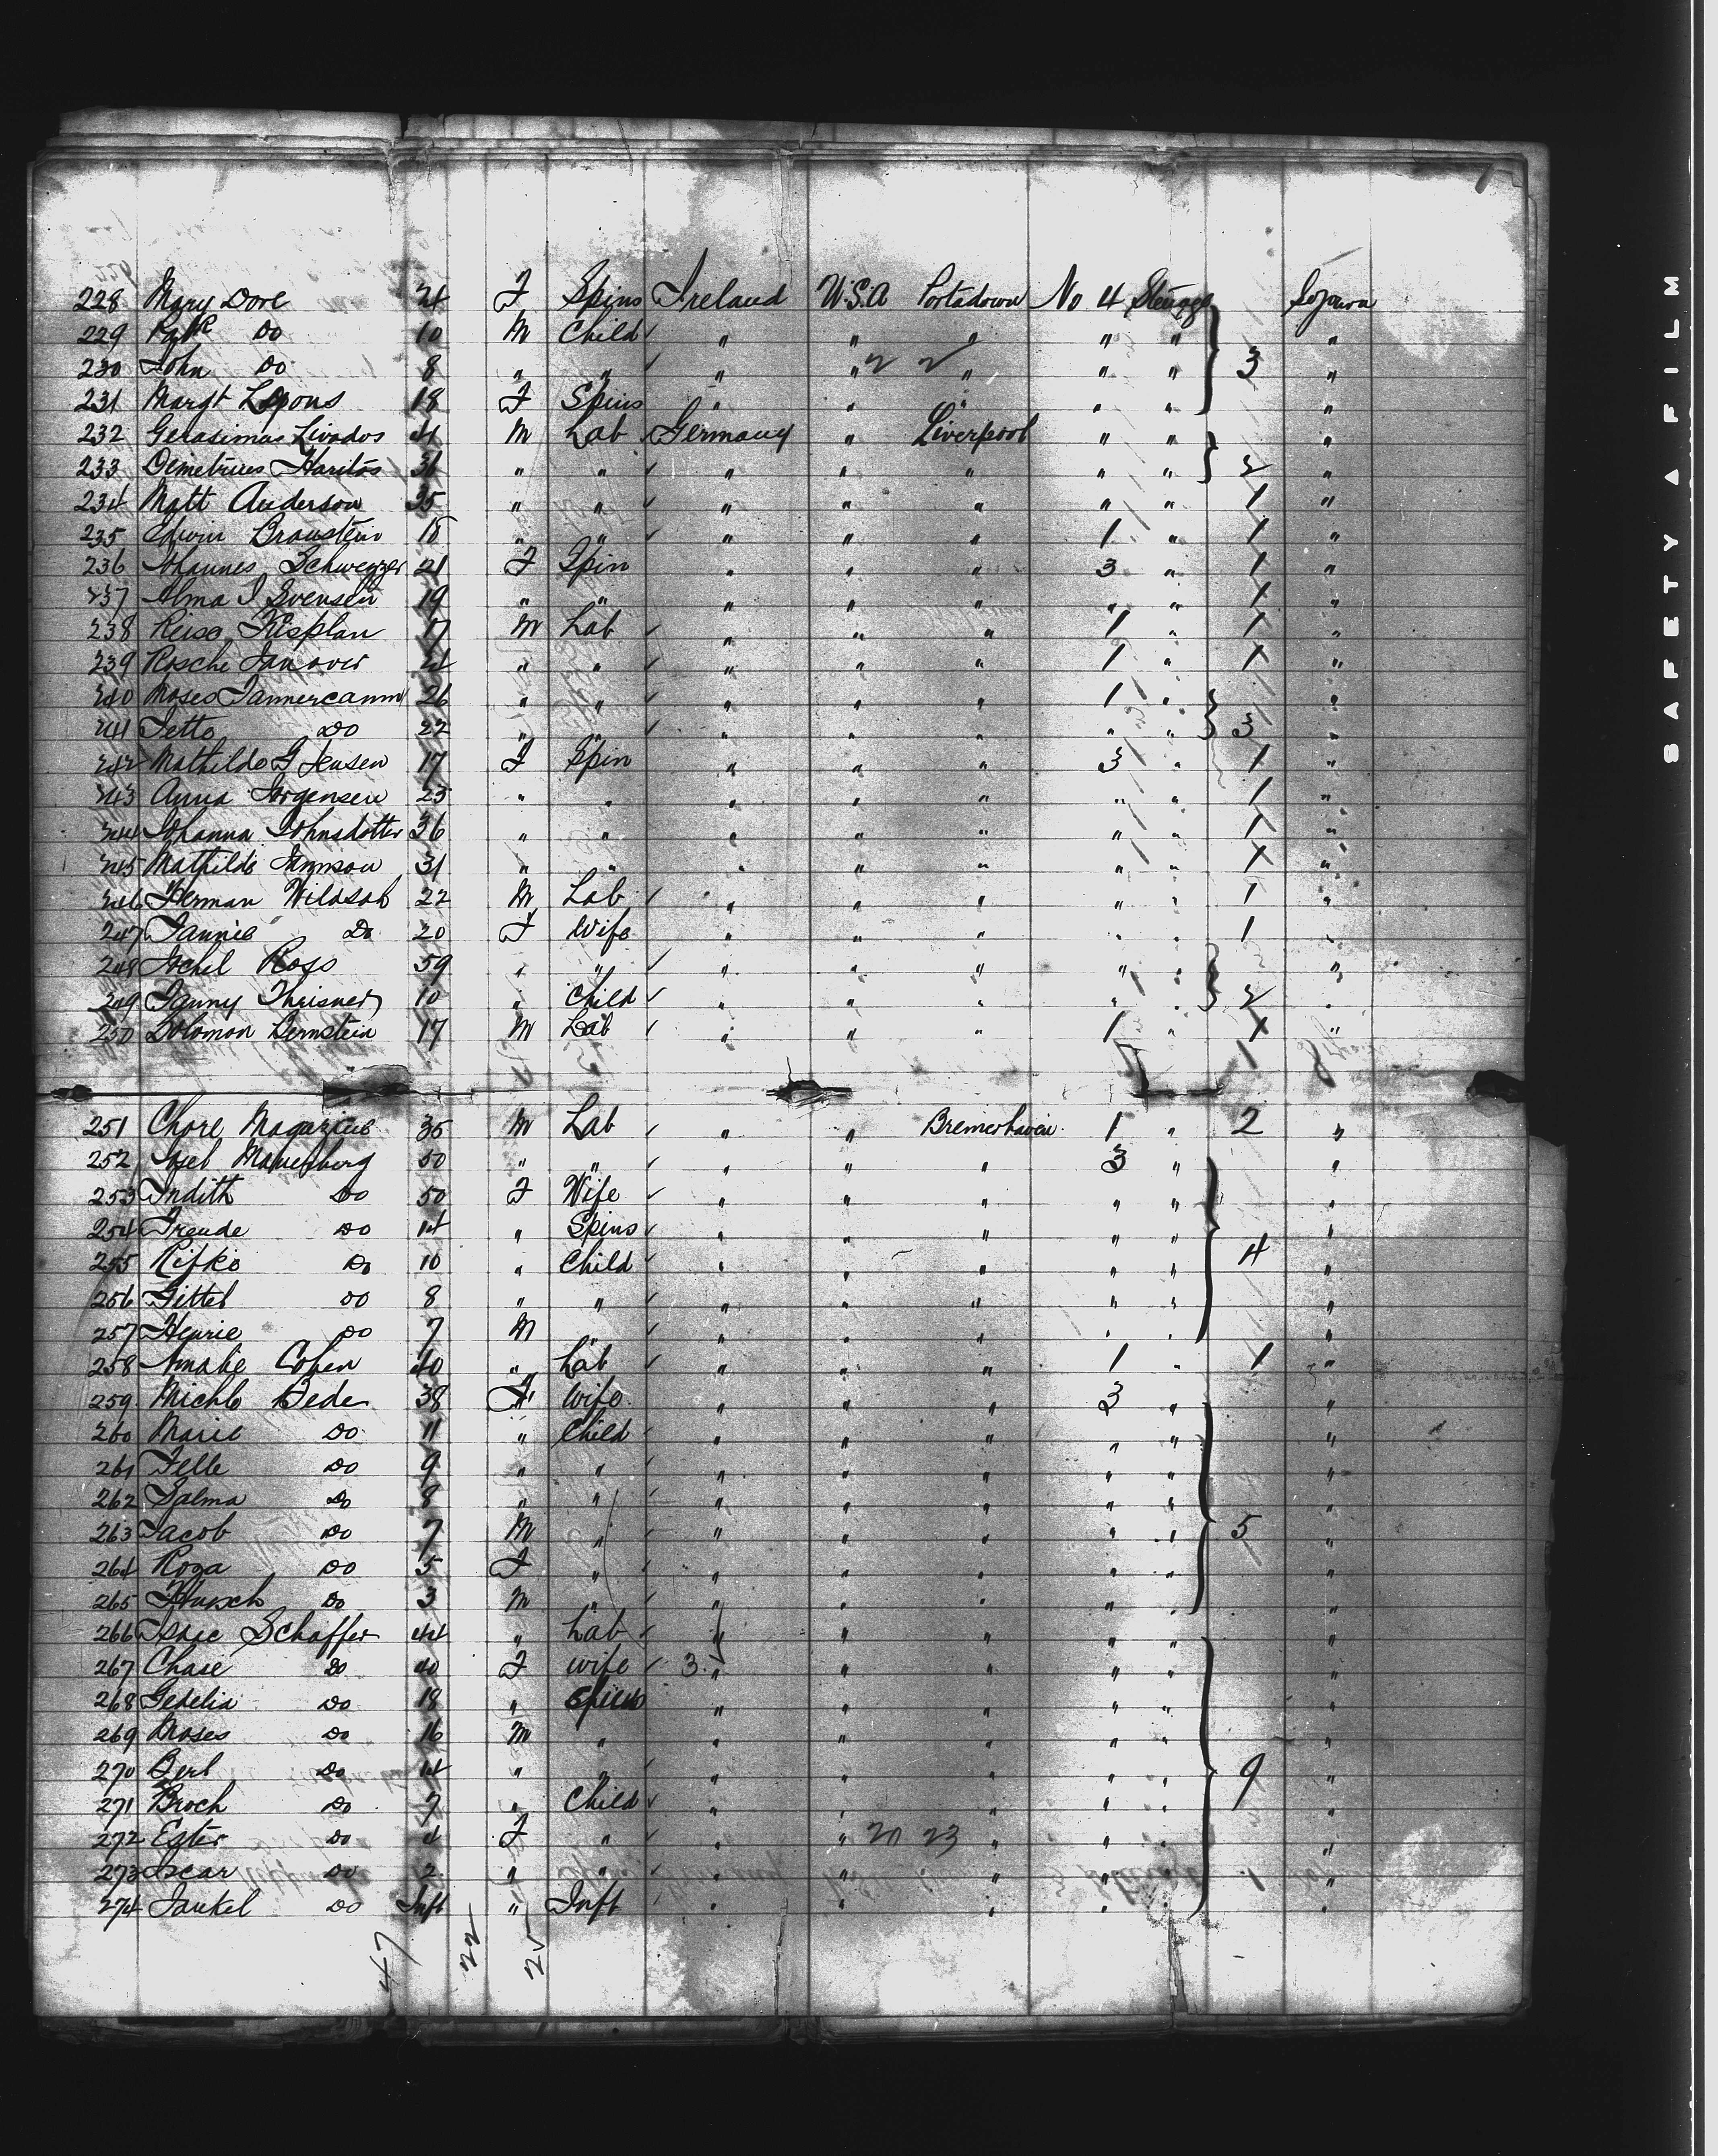 228 Mary Dore 24 F Spins Ireland U.S.A Portadown No 4 Steerage Sojourn
229 Patk Do 10 M Child " " " " " "
230 John Do 8 " " " " " " " 3 "
231 Margt Lyons 18 F Spins " " " " " "
232 Gerasimus Livados 41 M Lab Germany " Liverpool " " "
233 Demetrius Haritos 36 " " " " " " " 2 "
234 Matt Anderson 35 " " " " " " " 1 "
235 Edwin Braustein 18 " " " " " 1 " 1 "
236 Johannes Schweyzer 21 F Spin " " " 3 " 1 "
237 Alma J Svensen 19 " " " " " " " 1 "
238 Kisplan 17 M Lab " " " 1 " 1 "
239 Rosche Janover 24 " " " " " 1 " 1 "
240 Moses Tannercamm 26 " " " " " 1 " "
241 Tetto Do 22 " " " " " " " 3 "
242 Mathilde G Jensen 17 F Spin " " " 3 " 1 "
243 Anna Jorgensen 25 " " " " " " " 1 "
244 Johanna Johnsdotter 36 " " " " " " " 1 "
245 Mathilde 31 " " " " " " " 1 "
246 Herman 22 M Lab " " " " " 1 "
247 Fannie Do 20 F Wife " " " " " 1 "
248 Ross 59 " " " " " " " "
249 Fanny 10 " Child " " " " " 2 "
250 Solomon Bernstein 17 M Lab " " " 1 " 1 "
251 Chore 35 M Lab " " Bremerhaven 1 " 2 "
252 50 " " " " " 3 " "
253 Judith Do 50 F Wife " " " " " "
254 Freude Do 14 " Spins " " " " " "
255 Rifke Do 10 " Child " " " " " 4 "
256 Gittel Do 8 " " " " " " " "
257 Henrie Do 7 M " " " " " " "
258 Amalie Cohen 40 " Lab " " " 1 " 1 "
259 Michle Bede 38 F Wife " " " 3 " "
260 Marie Do 11 " Child " " " " " "
261 Do 9 " " " " " " " "
262 Salma Do 8 " " " " " " " "
263 Jacob Do 7 M " " " " " " 5 "
264 Roza Do 5 F " " " " " " "
265 Do 3 M " " " " " " "
266 Isaac Schaffer 44 " Lab " " " " " "
267 Chase Do 40 F Wife 3 " " " " " "
268 Gedelia Do 18 " Spins " " " " " "
269 Moses Do 16 M " " " " " " "
270 Berl Do 14 " " " " " " " 9 "
271 Broch Do 7 " Child " " " " " "
272 Ester Do 4 F " " " 20 23 " " " "
273 Iscar Do 2 " " " " " " " "
274 Jankel Do Inft " Inft " " " " " "
47 22 25
SAFETY ▲ FILM